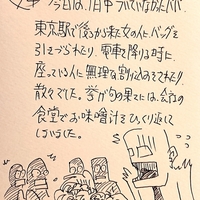 今日は、1日中ツいていなかったです。
東京駅で後ろから来た女の人にバッグを
引きずられたり、電車を降りる時に
座っている人に無理な割り込みをされたり、
散々でした。挙句の果てには、会社の
食堂でお味噌汁をひっくり返して
しまいました。